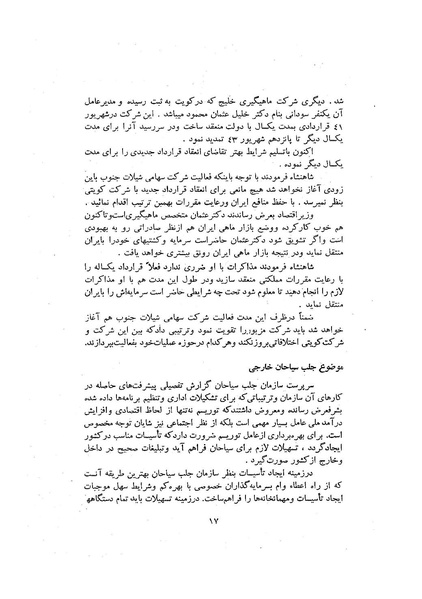 شد. دیگری شرکت ماهیگیری خلیج که درکویت به ثبت رسیده و مدیرعامل
آن یکنفر سودانی بنام دکتر خلیل عثمان محمود میباشد. این شرکت درشهریور
٤١ قراردادی بمدت یکسال با دولت منعقد ساخت ودر سررسید آنرا برای مدت
یکسال دیگر تا پانزدهم شهریور ٤٣ تمدید نمود.
اکنون باتسلیم شرایط بهتر تقاضای انعقاد قرارداد جدیدی را برای مدت
یکسال دیگر نموده.
شاهنشاه فرمودند با توجه باینکه فعالیت شرکت سهامی شیلات جنوب باین
زودی آغاز نخواهد شد هیچ مانعی برای انعقاد قرارداد جدید با شرکت کویتی
بنظر نمیرسد. با حفظ منافع ایران ورعایت مقررات بهمین ترتیب اقدام نمائید.
وزیراقتصاد بعرض رساندند دکترعثمان متخصص ماهیگیری‌است‌وتاکنون
هم خوب کارکرده ووضع بازار ماهی ایران هم‌ازنظر صادراتی رو به بهبودی
است واگر تشویق شود دکترعثمان حاضراست سرمایه وکشتیهای خودرا بایران
منتقل نماید ودر نتیجه بازار ماهی ایران رونق بیشتری خواهد یافت.
شاهنشاه فرمودند مذاکرات با او ضرری ندارد فعلاً قرارداد یکساله را
با رعایت مقررات مملکتی منعقد سازید ودر طول این مدت هم با او مذاکرات
لازم را انجام دهید تا معلوم شود تحت چه شرایطی حاضر است سرمایه‌اش را بایران
منتقل نماید.
ضمناً درظرف این مدت فعالیت شرکت سهامی شیلات جنوب هم آغاز
خواهد شد باید شرکت مزبوررا تقویت نمود وترتیبی دادکه بین این شرکت و
شرکت‌کویتی اختلافاتی بروزنکند وهرکدام درحوزه عملیات‌خود بفعالیت‌بپردازند.
موضوع جلب سیاحان خارجی
سرپرست سازمان جلب سیاحان گزارش تفصیلی پیشرفت‌های حاصله در
کارهای آن سازمان وترتیباتی‌که برای تشکیلات اداری وتنظیم برنامه‌ها داده شده
بشرفعرض رسانده ومعروض داشتندکه توریسم نه‌تنها از لحاظ اقتصادی وافزایش
درآمدملی عامل بسیار مهمی است بلکه از نظر اجتماعی نیز شایان توجه مخصوص
است. برای بهره‌برداری ازعامل توریسم ضرورت داردکه تأسیسات مناسب درکشور
ایجادگردد، تسهیلات لازم برای سیاحان فراهم آید وتبلیغات صحیح در داخل
وخارج ازکشور صورت‌گیرد.
درزمینه ایجاد تأسیسات بنظر سازمان جلب سیاحان بهترین طریقه آنست
که از راه اعطاء وام بسرمایه‌گذاران خصوصی با بهره‌کم وشرایط سهل موجبات
ایجاد تأسیسات ومهمانخانه‌ها را فراهم‌ساخت. درزمینه تسهیلات باید تمام دستگاهه
١٧